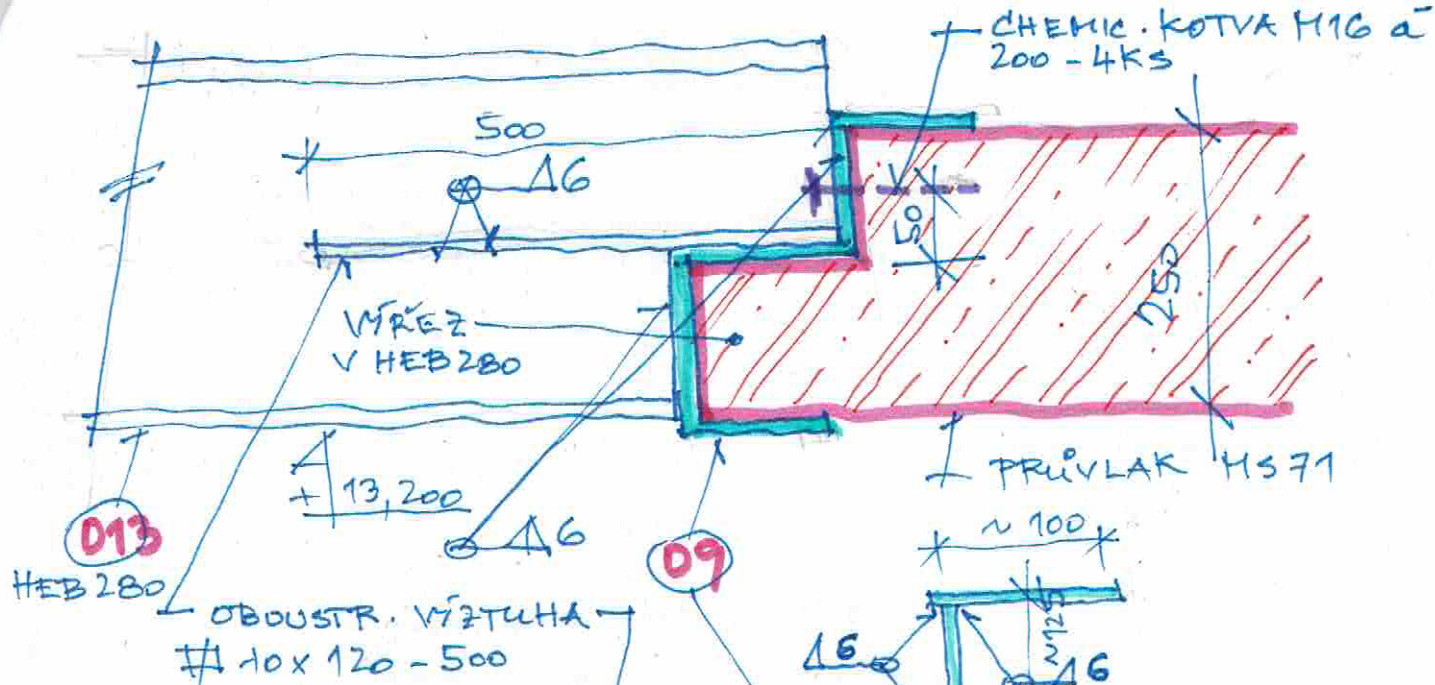 CHEMIC. KOTVA M16 á
200 - 4KS
500
Δ6
50
250
VÝŘEZ
V HEB 280
PRŮVLAK MS71
+13,200
D13
HEB 280
Δ6
D9
~ 100
OBOUSTR. VÝZTUHA
# 10 x 120 - 500
~125
Δ6
Δ6